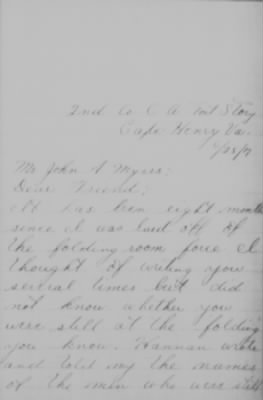 2nd Co C A Fort Story
Cape Henry Va.
Mr John A Myers:
Dear Friend;
It has been eight months
since I was laid off of
the folding room force I
thought of writing you
several times but did
not know whether you
were still at the folding
you know. Hannan wrote
and told my the names
of the men who were still